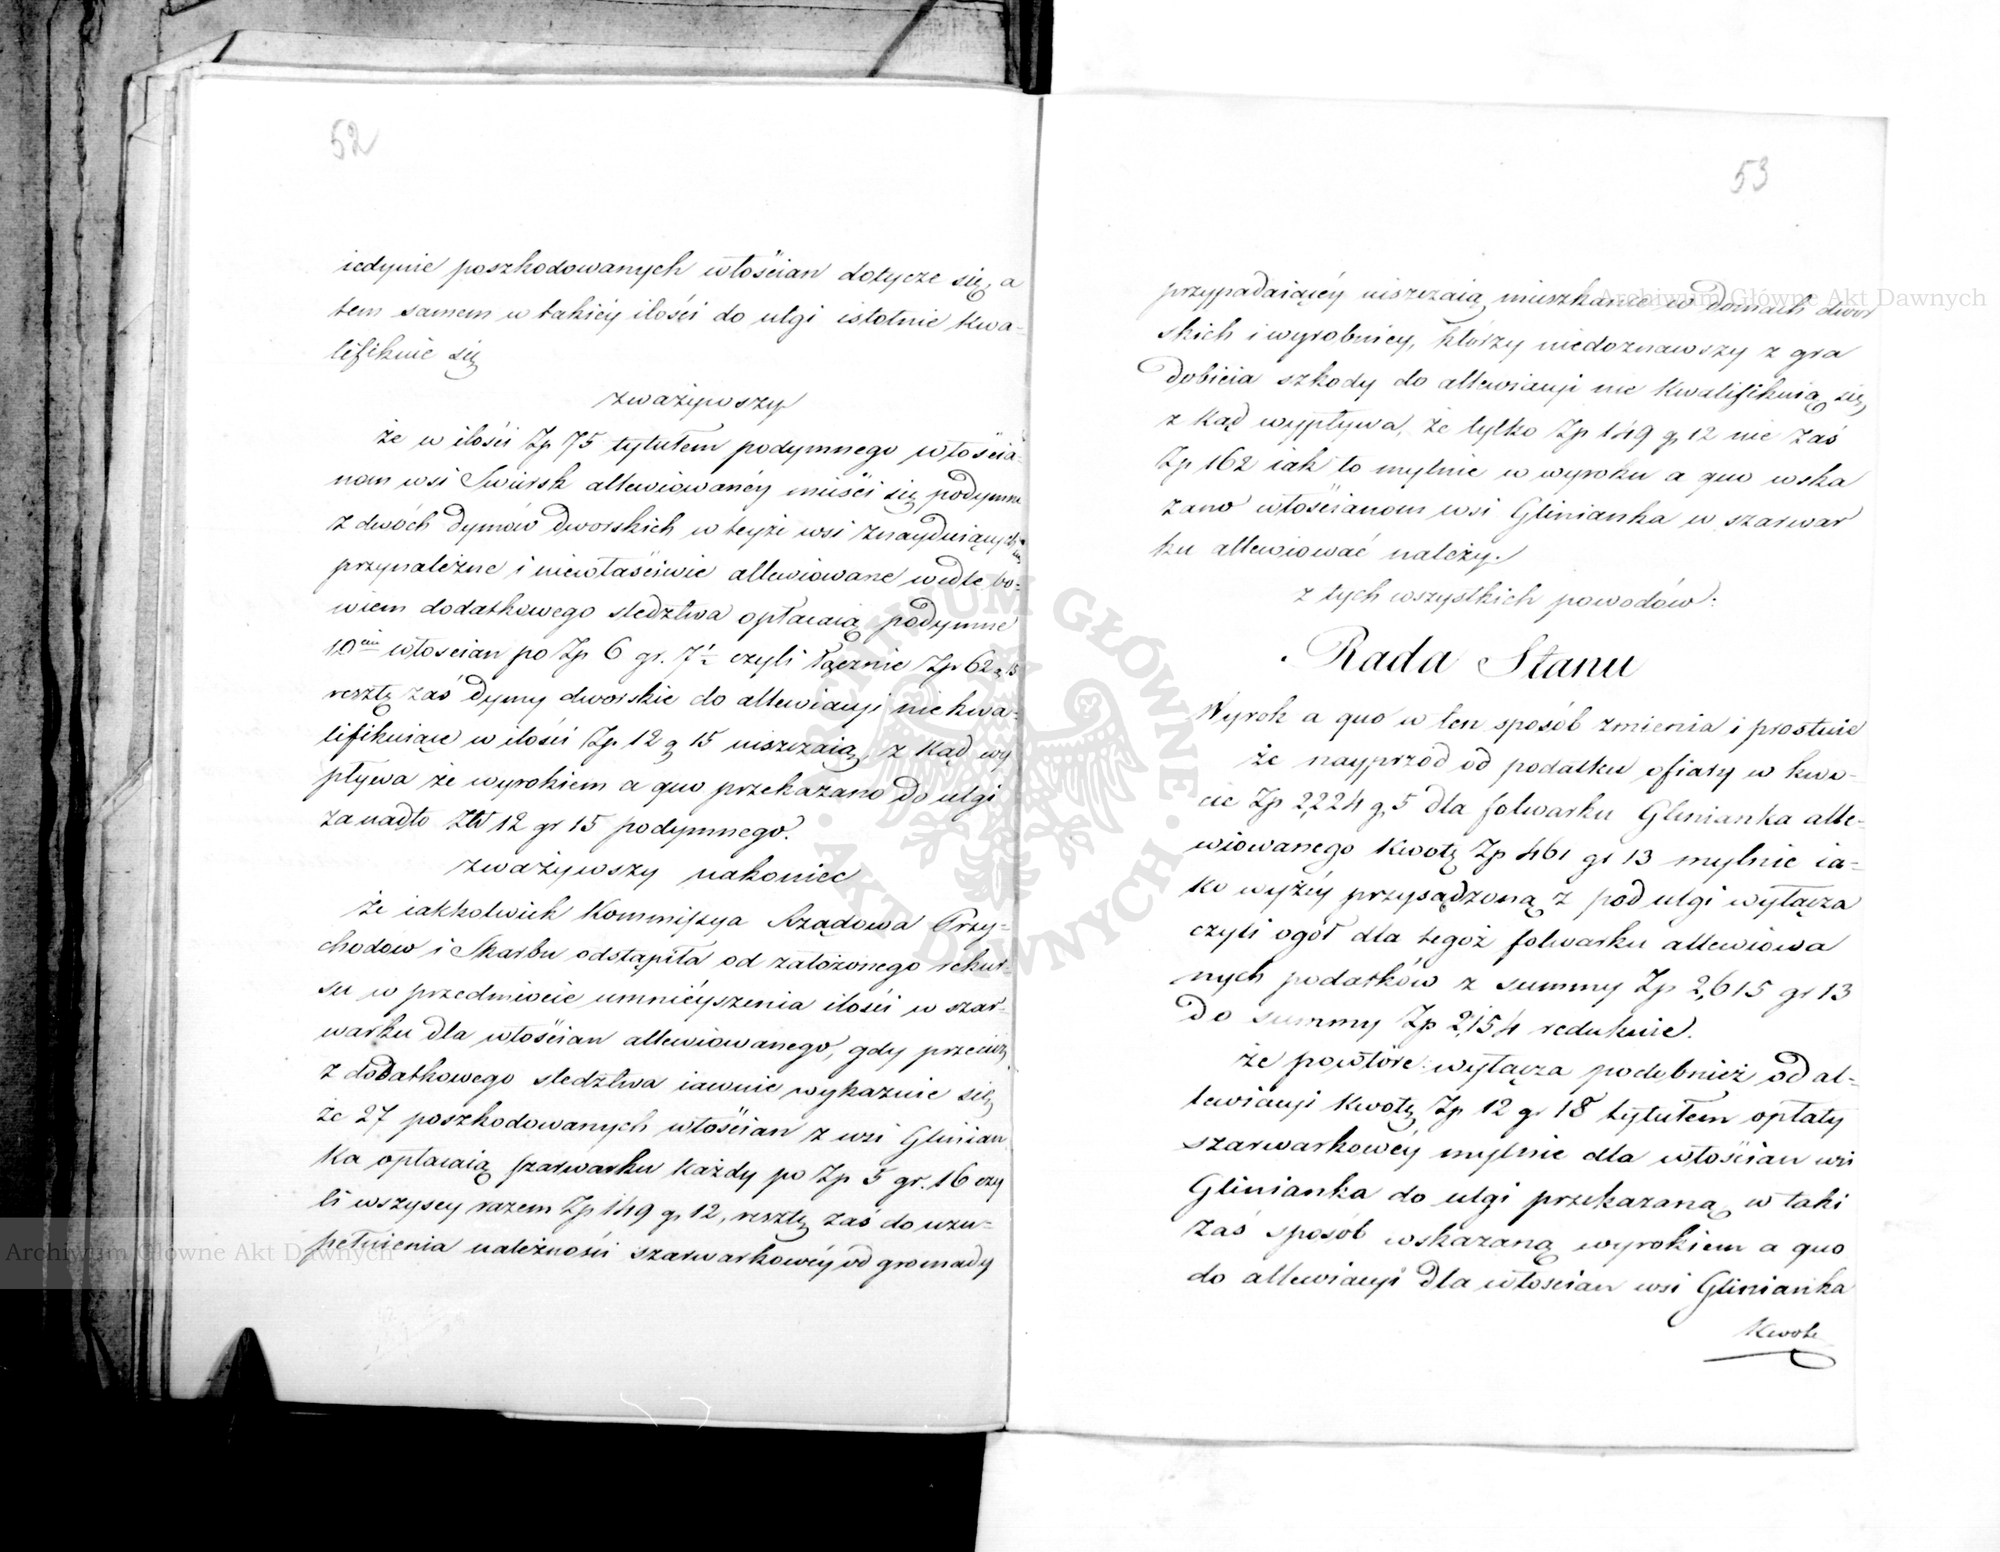 52
iedynie poszkodowanych włościan dotycze się, a
tem samem w takiéy ilości do ulgi istotnie kwa-
lifikuie się
zważywszy
że w ilości Zp 75 tytułem podymnego włościa-
nom wsi Swiersk allewiowanéy mieści się podymne
z dwóch dymów dworskich w teyże wsi znayduiących
przynależne i niewłaściwie allewiowane wedle bo-
wiem dodatkowego sledztwa opłacaią podymne
10ciu włoscian po Zp 6 gr. 7½ czyli łącznie Zp 62 g 15
resztę zaś dymy dworskie do allewiacyi nie kwa-
lifikuiące w ilości Zp. 12 g 15 uiszczaią, z kąd wy
pływa że wyrokiem a quo przekazano do ulgi
zanadto Zł 12 gr 15 podymnego.
zważywszy nakoniec
że iakkolwiek Kommissya Rządowa Przy-
chodów i Skarbu odstąpiła od założonego rekur-
su w przedmiocie umnieyszenia ilości w szar-
warku dla włościan allewiowanego, gdy przecież
z dodatkowego sledztwa iawnie wykazuie się
że 27 poszkodowanych włościan z wsi Glinian
ka opłacaią szarwarku każdy po Zp 5 gr. 16 czy
li wszyscy razem Zp 149 g, 12, resztę zaś do uzu-
pełnienia należności szarwarkowéy od gromady
53
przypadaiącéy uiszczaią mieszkańce w domach dwor
skich i wyrobnicy, którzy niedoznawszy z gra
dobicia szkody do allewiacyi nie kwalifikuią się
z kąd wypływa, że tylko Zp 149 g, 12 nie zaś
Zp 162 iak to mylnie w wyroku a quo wska
zano włościanom wsi Glinianka w szarwar
ku allewiować należy.
z tych wszystkich powodów:
Rada Stanu
Wyrok a quo w ten sposób zmienia i prostuie
że nayprzód od podatku ofiary w kwo-
cie Zp 2,224 g, 5 dla folwarku Glinianka alle-
wiowanego kwotę Zp 461 gr 13 mylnie ia-
ko wyżéy przysądzoną z pod ulgi wyłącza
czyli ogół dla tegoż folwarku allewiowa
nych podatków z summy Zp 2,615 gr 13
do summy Zp 2,154 redukuie.
że powtóre: wyłącza podobnież od al-
lewiacyi kwotę Zp 12 gr 18 tytułem opłaty
szarwarkowéy mylnie dla włościan wsi
Glinianka do ulgi przekazaną, w taki
zaś sposób wskazaną wyrokiem a quo
do allewiacyi dla włoscian wsi Glinianka
Kwotę
Archiwum Główne Akt Dawnych
Archiwum Główne Akt Dawnych
ARCHIWUM GŁÓWNE
AKT DAWNYCH